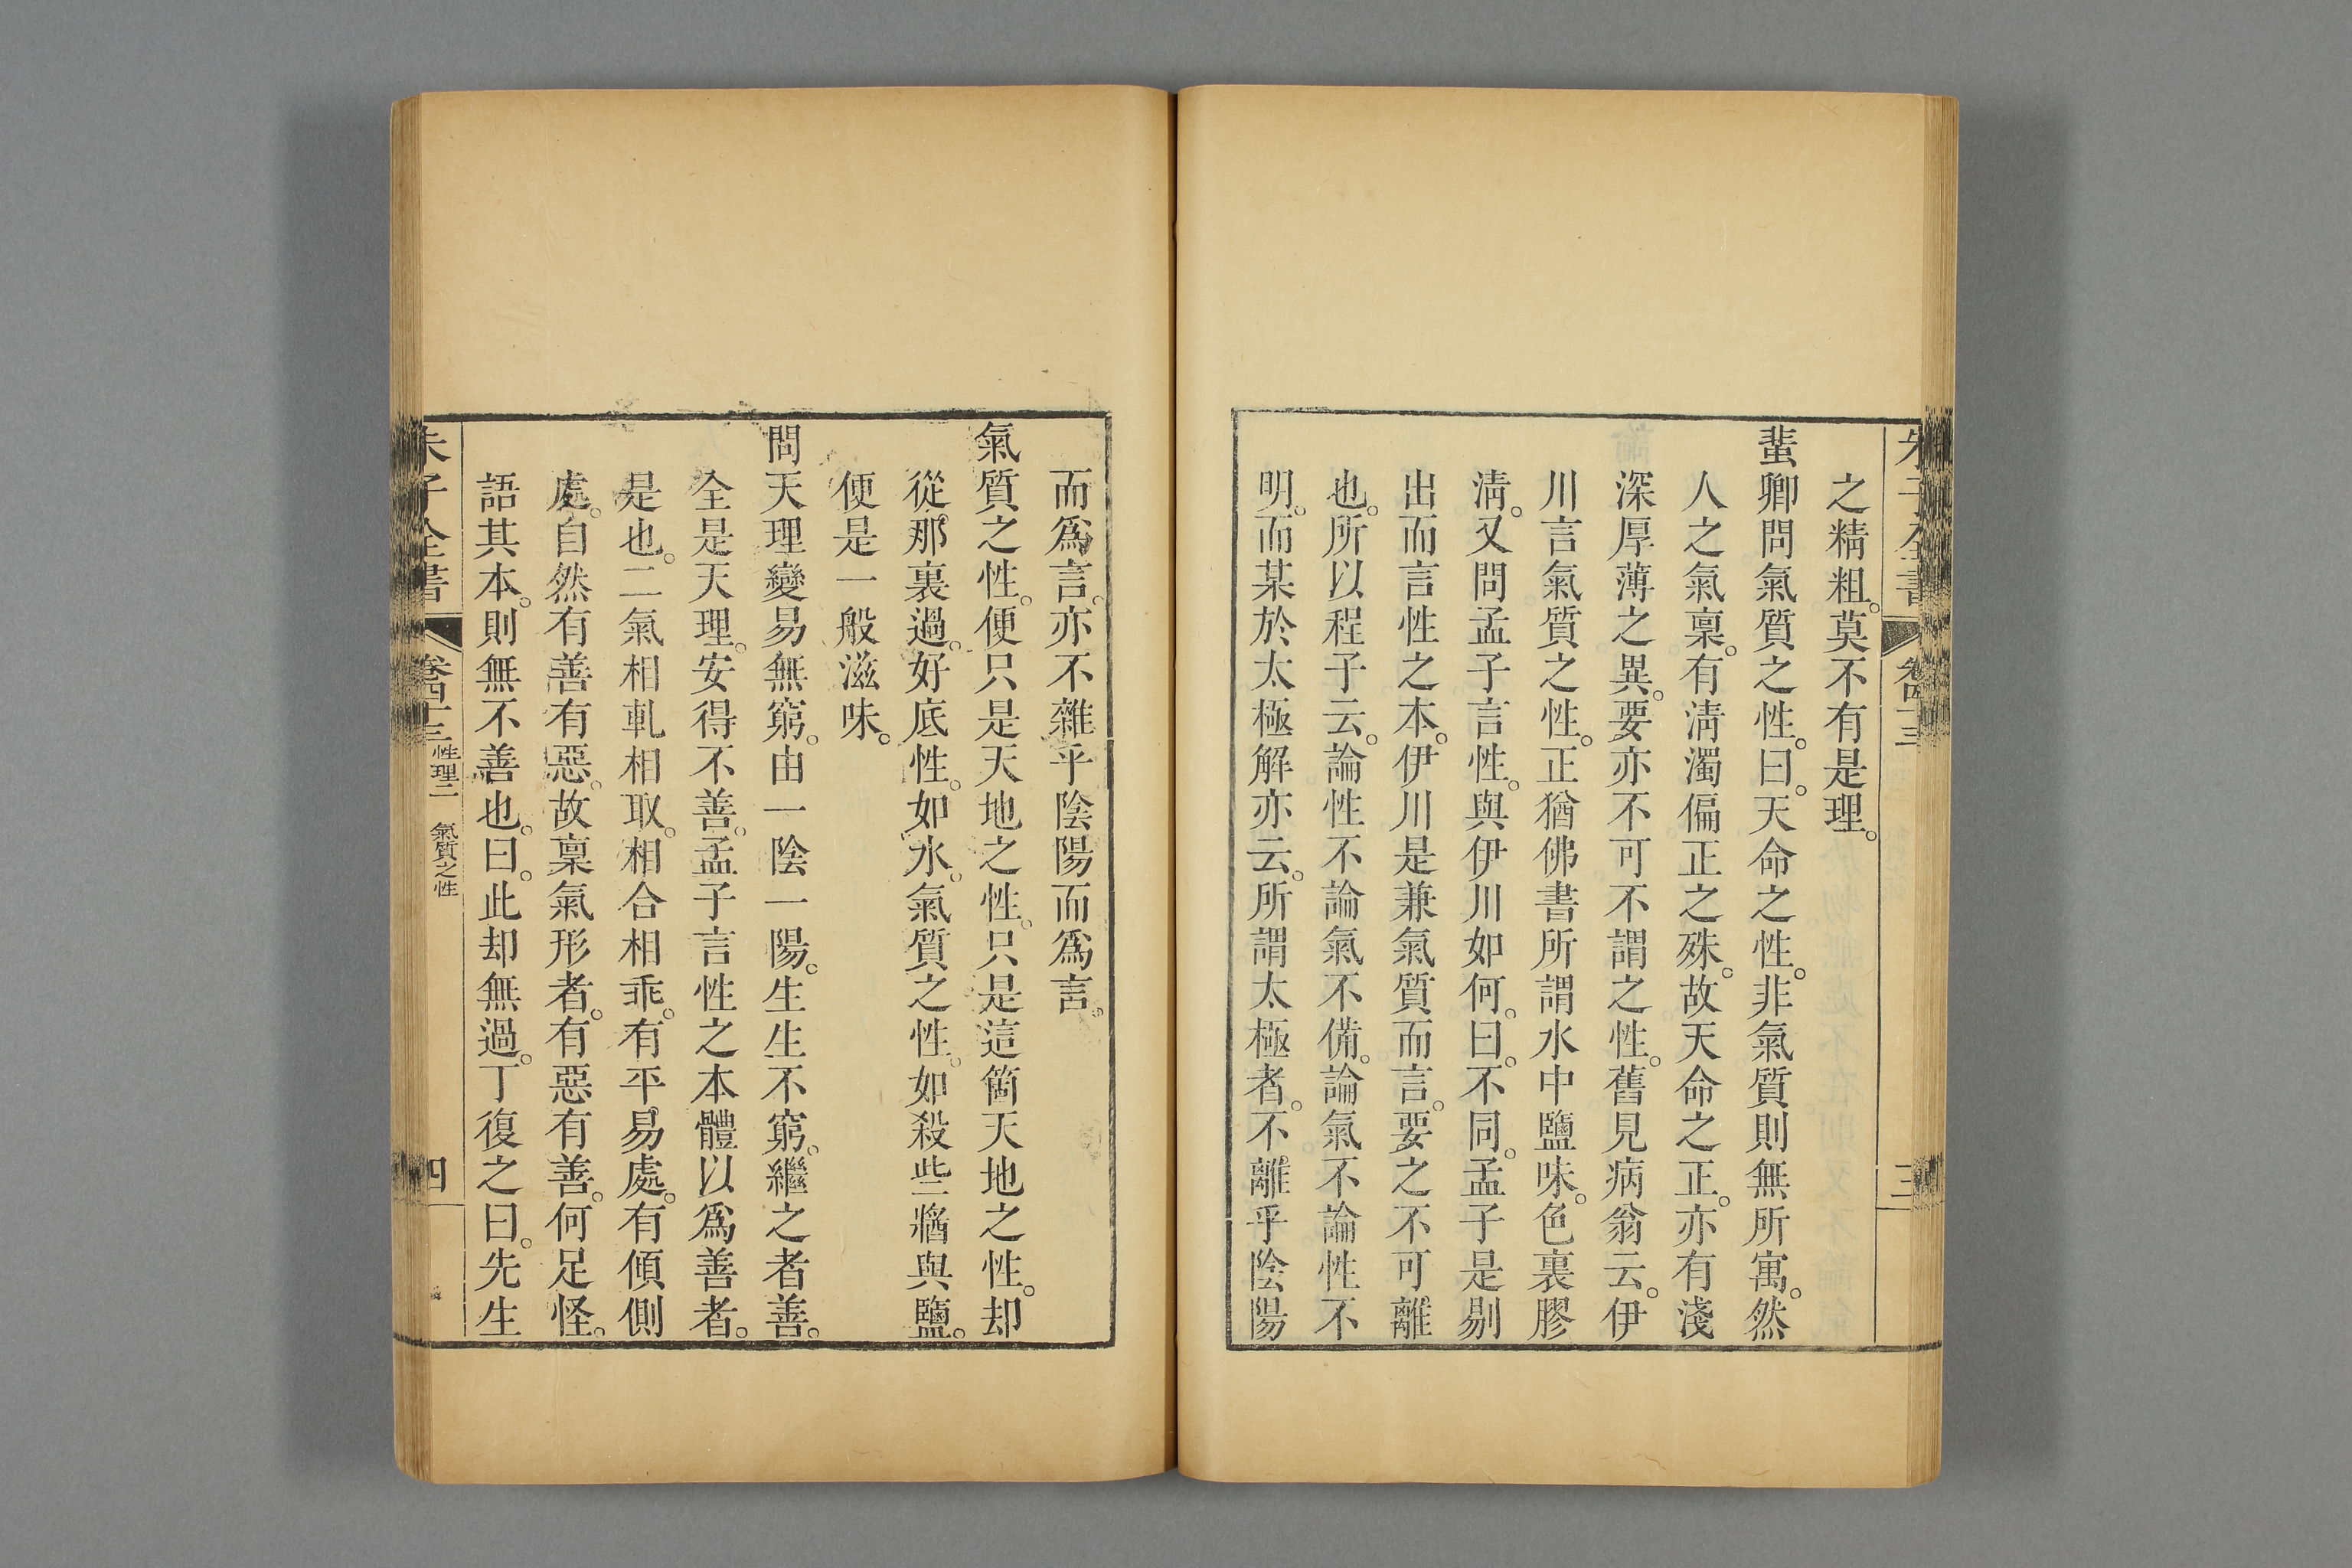 朱子全書 卷四十三 三
之精粗。莫不有是理。
蜚卿問氣質之性。曰。天命之性。非氣質則無所寓。然
人之氣稟。有淸濁偏正之殊。故天命之正。亦有淺
深厚薄之異。要亦不可不謂之性。舊見病翁云。伊
川言氣質之性。正猶佛書所謂水中鹽味。色裏膠
淸。又問孟子言性。與伊川如何。曰。不同。孟子是剔
出而言性之本。伊川是兼氣質而言。要之不可離
也。所以程子云。論性不論氣不備。論氣不論性不
明。而某於太極解亦云。所謂太極者。不離乎陰陽
而爲言。亦不雜乎陰陽而爲言。
氣質之性。便只是天地之性。只是這箇天地之性。却
從那裏過。好底性。如水。氣質之性。如殺些醬與鹽。
便是一般滋味。
問天理變易無窮。由一陰一陽。生生不窮。繼之者善。
全是天理。安得不善。孟子言性之本體以爲善者。
是也。二氣相軋相取。相合相乖。有平易處。有傾側
處。自然有善有惡。故稟氣形者。有惡有善。何足怪。
語其本。則無不善也。曰。此却無過。丁復之曰。先生
朱子全書 卷四十三 性理二 氣質之性 四